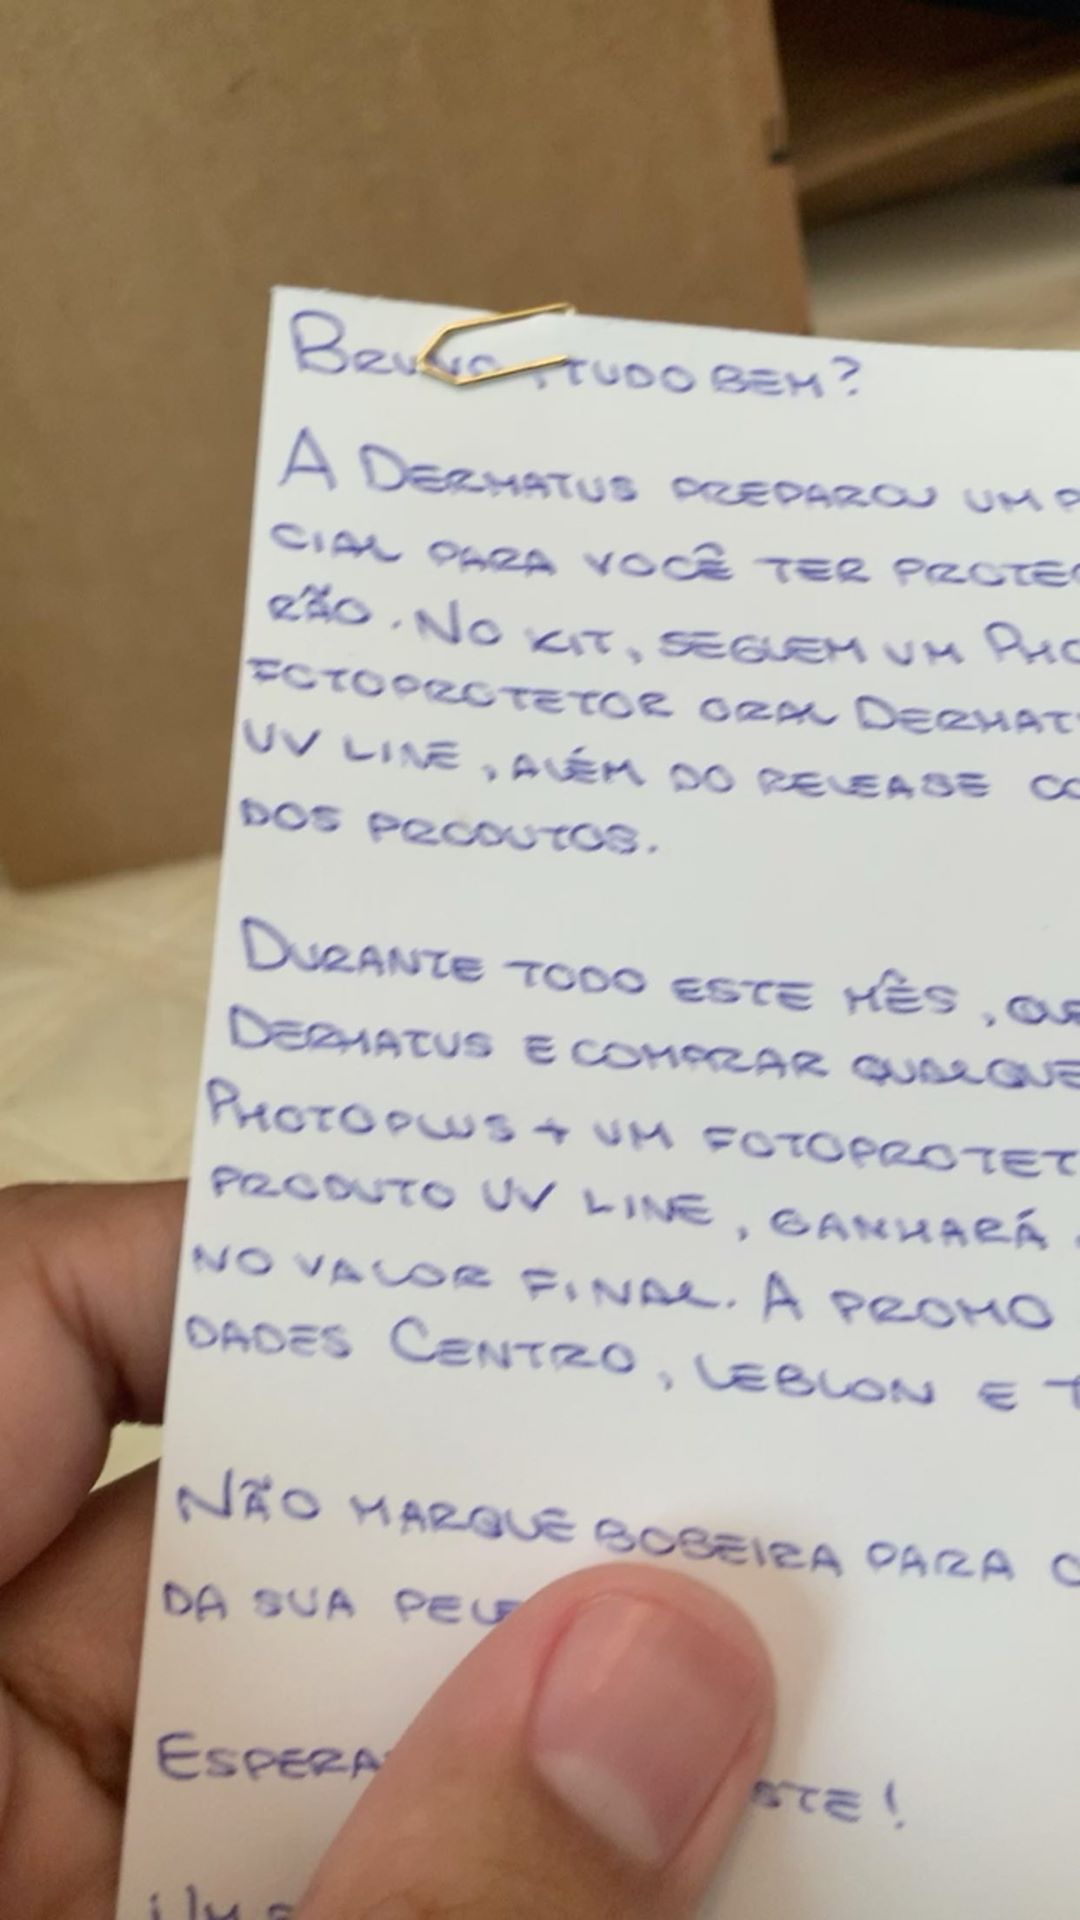 BRUNO, TUDO BEM?
A DERMATUS PREPAROU UM P
CIAL PARA VOCÊ TER PROTEÇ
RÃO. NO KIT, SEGUEM UM PHO
FOTOPROTETOR ORAL DERMAT
UV LINE, ALÉM DO RELEASE CO
DOS PRODUTOS.
DURANTE TODO ESTE MÊS, QUE
DERMATUS E COMPRAR QUALQUE
PHOTOPLUS + UM FOTOPROTET
PRODUTO UV LINE, GANHARÁ
NO VALOR FINAL. A PROMO
DADES CENTRO, LEBLON E T
NÃO MARQUE BOBEIRA PARA C
DA SUA PELE
ESPERA STE!